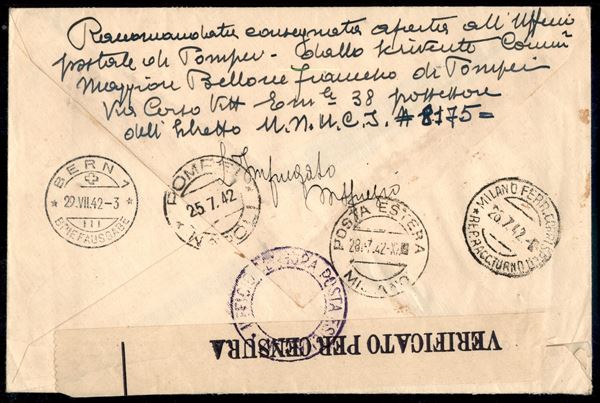 Raccomandata consegnata aperta all'Ufficio
postale di Pompei - dallo scrivente Comm
Maggiore Bellone Francesco di Pompei
Via Corso Vitt Em le 38 possessore
dell'libretto U.N.U.C.I. # 8175 =
L'Impiegato
BERN 1
29.VII.42-3
BRIEFAUSGABE
III
POMPEI
25.7.42
POSTA ESTERA
28.-7.42-XX
MILANO
MILANO FERR.
26.7.42
POSTA ESTERA
VERIFICATO PER CENSURA